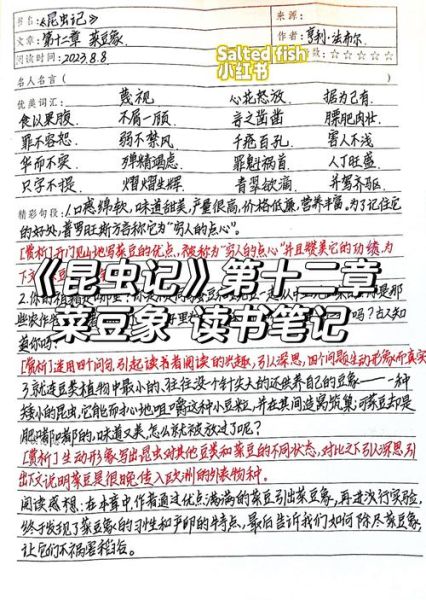 书名:《昆虫记》
来源:
文章:第十二章 菜豆象
作者:亨利·法布尔
阅读时间:2023.8.8
数:☆☆☆☆☆
Salted fish
小红书
名人名言(
优美词汇: 蔑视 心花怒放 据为己有
食以果腹 不屑一顾 膘肥肉壮
罪不容恕 弱不禁风 千疮百孔 害人不浅
华而不实 殚精竭虑 罪魁祸首 人丁旺盛
只字不提 熠熠生辉 青翠欲滴 并驾齐驱
精彩句段:1.口感绵软,味道甜美,产量很高,价格低廉,营养丰富。为了记住它
的好处,普罗旺斯方言称它为“穷人的点心”。
[赏析]开门见山地写菜豆的优点,被称为“穷人的点心”并且赞美它的功绩,为
《昆虫记》第十二章
菜豆象 读书笔记
[赏析]运用四个问句,引起读者阅读的兴趣,引人深思,四个问题生动形象而真实
3.就连豆类植物中最小的,往往没个针尖大的还供养自己的豆象——一种
矮小的昆虫,它能耐心地咀嚼这种小豆粒,并在其间造窝筑巢;可菜豆却是
肥嘟嘟的,味道又美,怎么就被放过了呢?
[赏析]生动形象写出昆虫对其他豆类和菜豆的不同状态,对比之下引人深思,引
出下文说明菜豆是很晚传入欧洲的外来物种。
阅读感想:在本章中,作者通过优点满满的菜豆引出菜豆象,再进浅行实验,
终于发现了菜豆象的习性和产卵的特点,最后告诉我们如何除尽菜豆象,
让它们不祸害稻谷。